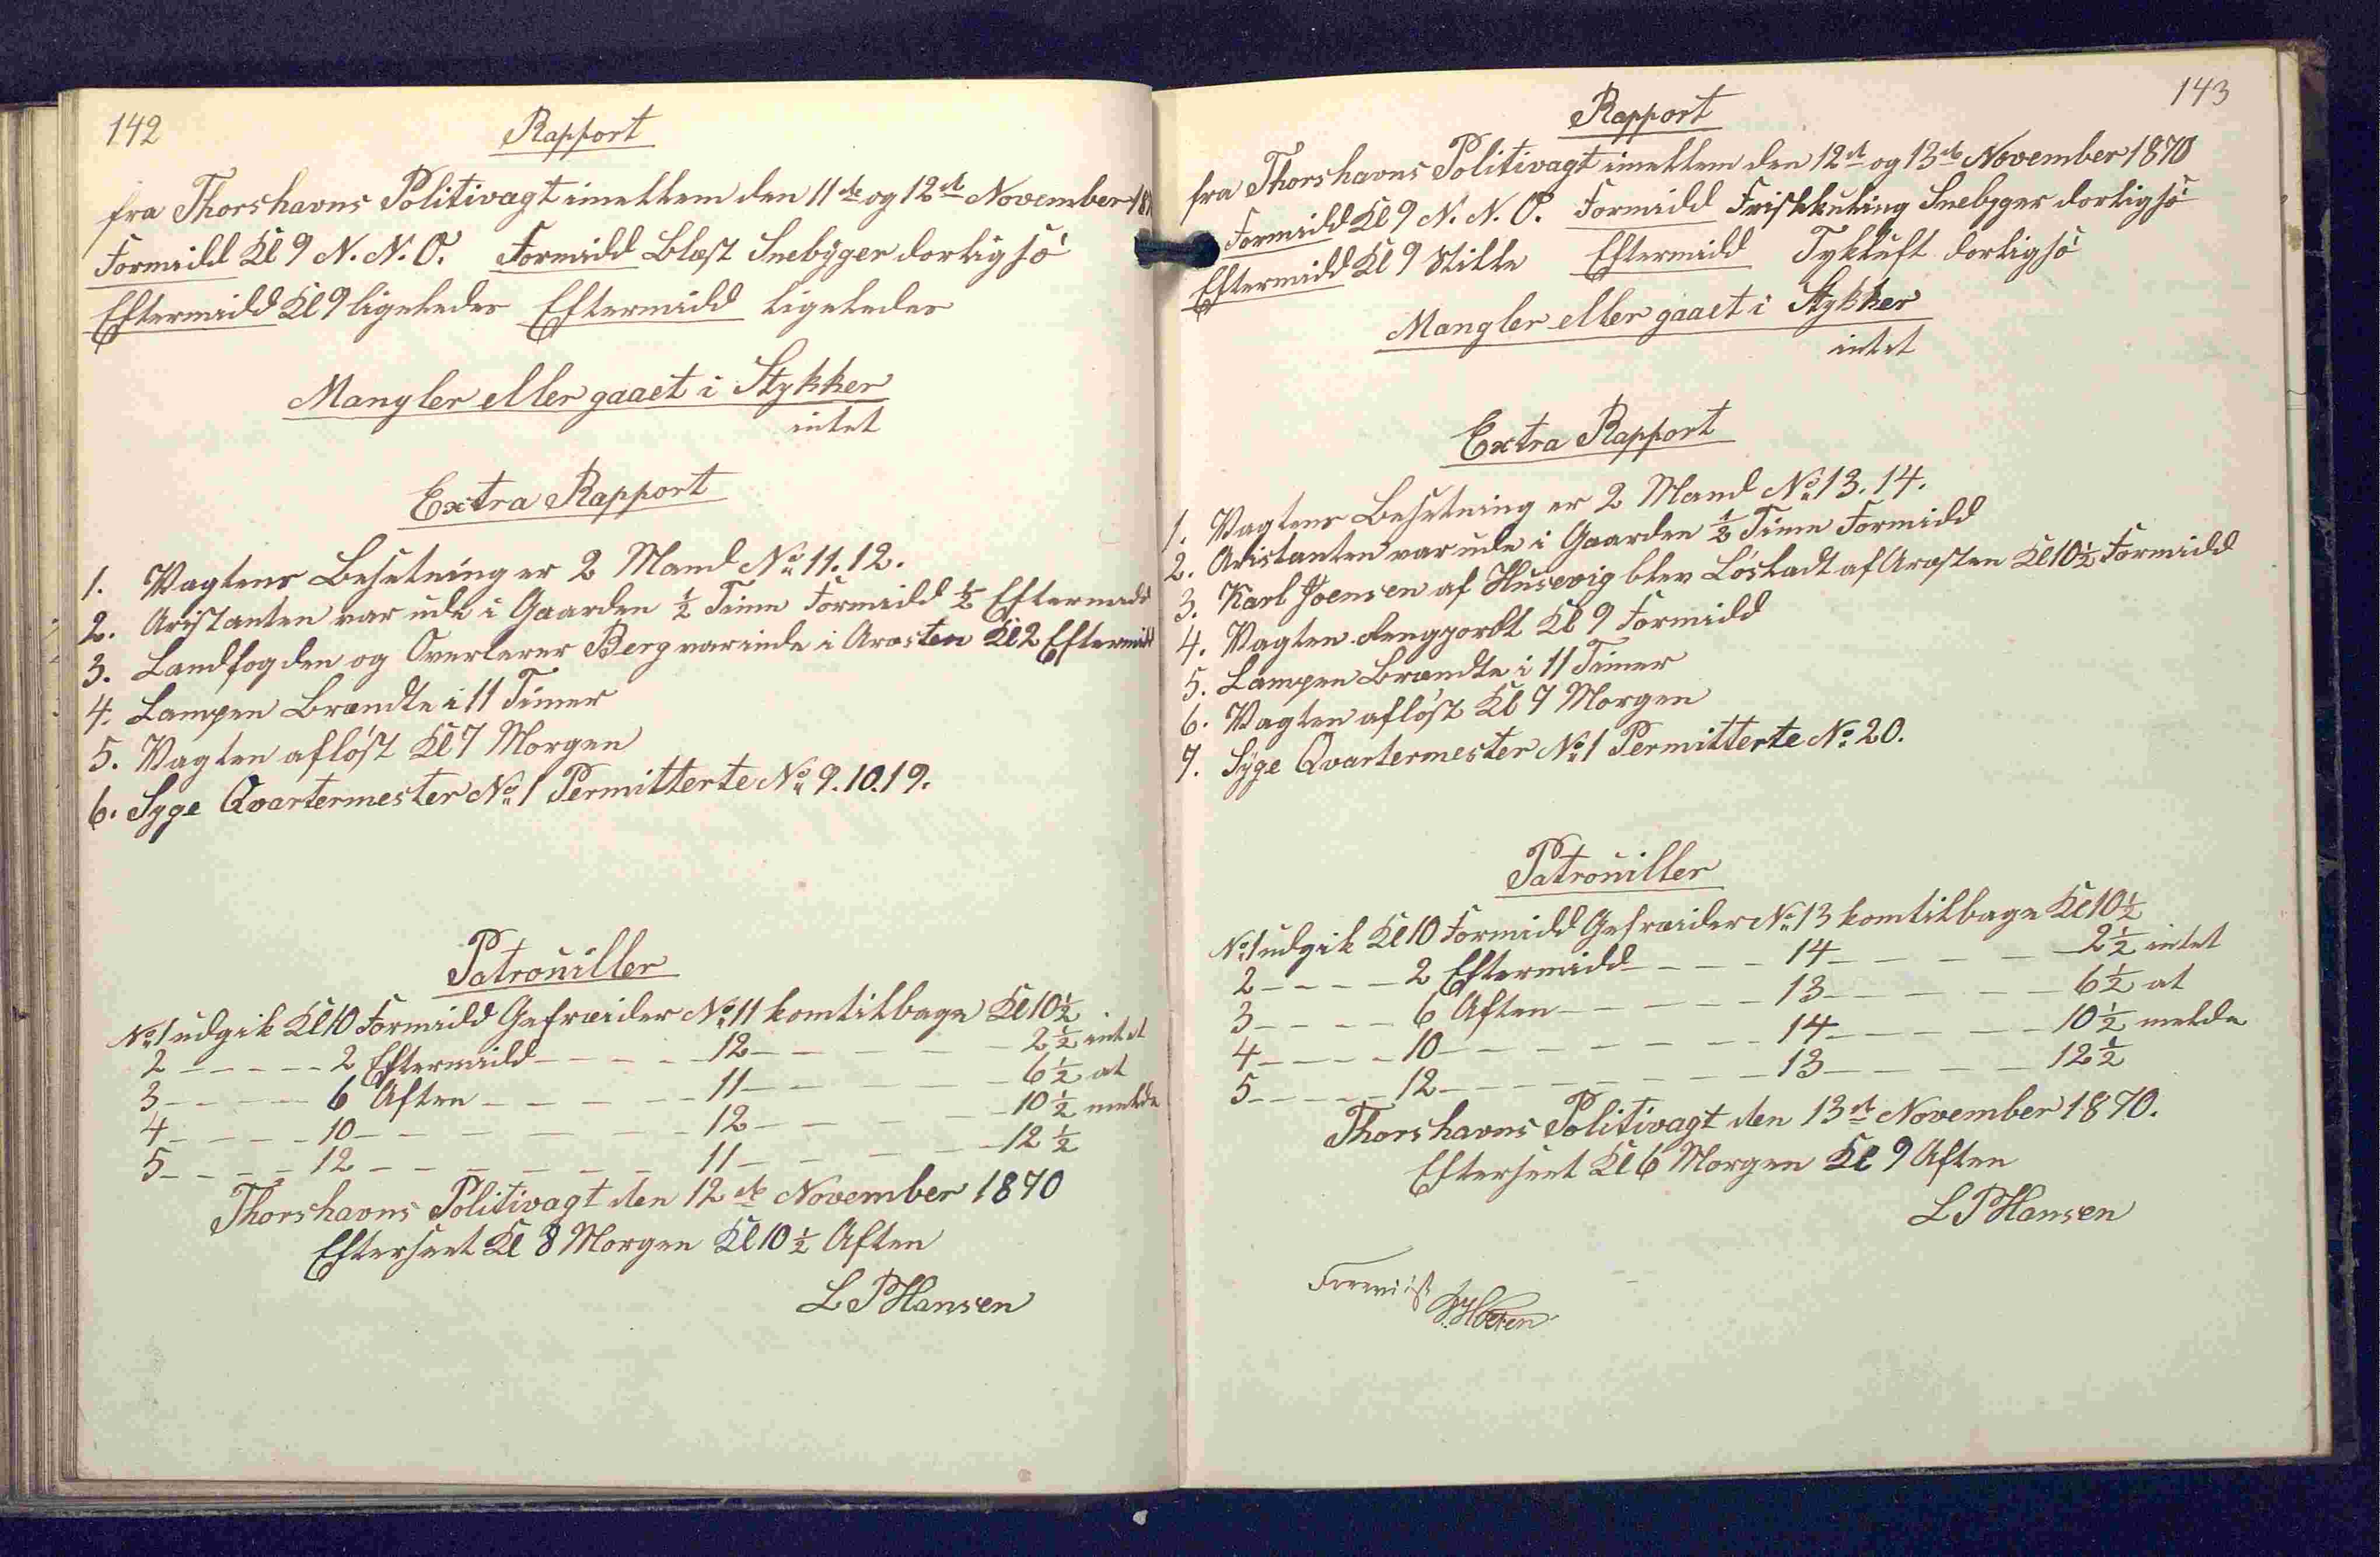 142
Rapport
fra Thorshavns Politivagt imellem den 11te og 12te November 18
Formidd Kl 9 N. N. O. Formidd Blæst Snebyger dorlig sö
Eftermidd Kl 9 ligeledes Eftermidd ligeledes
Mangler eller gaaet i Stykker
intet
Extra Rapport
1. Vagtens Besetning er 2 Mand No 11. 12.
2. Aristanten var ude i Gaarden 1/2 Time Formidd 1/2 Eftermidd
3. Landfogden og Overlerer Berg var inde i Aræsten Kl 2 Eftermidd
4. Lampen Brændte i 11 Timer
5. Vagten aflöst Kl 7 Morgen
6. Syge Qvartermester No 1 Permitterte No 9. 10. 19.
Patrouiller
No 1 udgik Kl 10 Formidd Gefræider No 11 kom tilbage Kl 10 1/2
2 - - - - 2 Eftermidd - - - - 12 - - - - - 2 1/2 intet
3 - - - - 6 Aften - - - - 11 - - - - - 6 1/2 at
4 - - - - 10 - - - - - - 12 - - - - 10 1/2 melde
5 - - - - 12 - - - - - - 11 - - - - - 12 1/2
Thorshavns Politivagt den 12te November 1870
Efterseet Kl 8 Morgen Kl 10 1/2 Aften
L P Hansen
143
Rapport
fra Thorshavns Politivagt imellem den 12te og 13de November 1870
Formidd Kl 9 N. N. O. Formidd Friskkuling Snebyger dorlig sö
Eftermidd Kl 9 Stille Eftermidd Tykluft dorlig sö
Mangler eller gaaet i Stykker
intet
Extra Rapport
1. Vagtens Besetning er 2 Mand No 13. 14.
2. Aristanten var ude i Gaarden 1/2 Time Formidd
3. Karl Joensen af Husevig blev Lösladt af Aræsten Kl 10 1/2 Formidd
4. Vagten Rengjordt Kl 9 Formidd
5. Lampen Brændte i 11 Timer
6. Vagten aflöst Kl 7 Morgen
7. Syge Qvartermester No 1 Permitterte No 20.
Patrouiller
No 1 udgik Kl 10 Formidd Gefræider No 13 kom tilbage Kl 10 1/2
2 - - - - 2 Eftermidd - - - - 14 - - - - - 2 1/2 intet
3 - - - - 6 Aften - - - - - 13 - - - - - 6 1/2 at
4 - - - - 10 - - - - - - 14 - - - - - 10 1/2 melde
5 - - - - 12 - - - - - - 13 - - - - - 12 1/2
Thorshavns Politivagt den 13de November 1870.
Efterseet Kl 6 Morgen Kl 9 Aften
L P Hansen